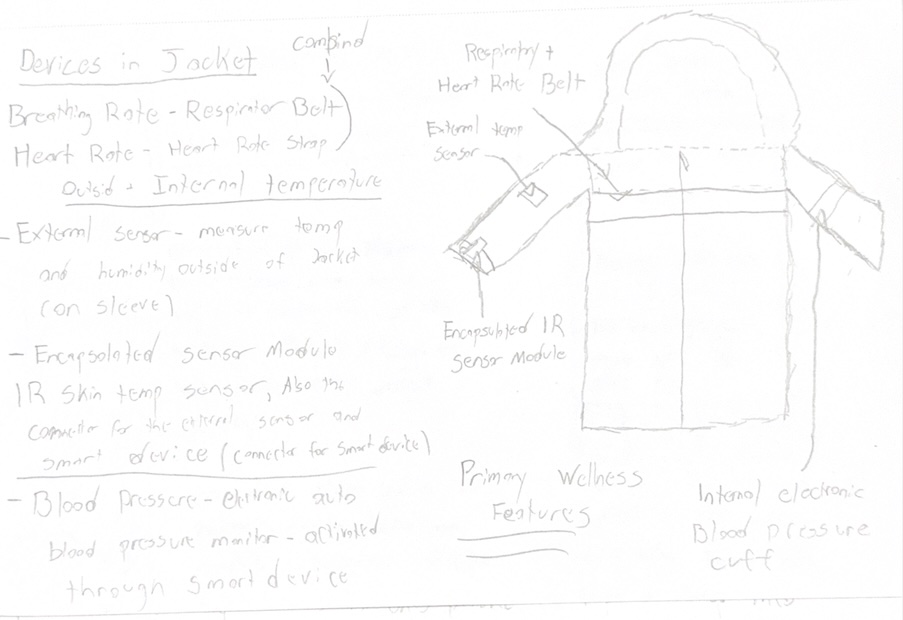 Devices in Jacket
combind
Breathing Rate - Respirator Belt
Heart Rate - Heart Rate Strap
Outsid + Internal temperature
- External sensor - measure temp
and humidity outside of Jacket
(on sleeve)
- Encapsolated sensor Module
IR skin temp sensor, Also the
connector for the external sensor and
smart device (connector for smart device)
- Blood pressure - eletronic auto
blood pressure monitor - activated
through smart device
Respiratry +
Heart Rate Belt
External temp
sensor
Encapsulated IR
sensor Module
Primary Wellness
Features
Internal electronic
Blood pressure
cuff